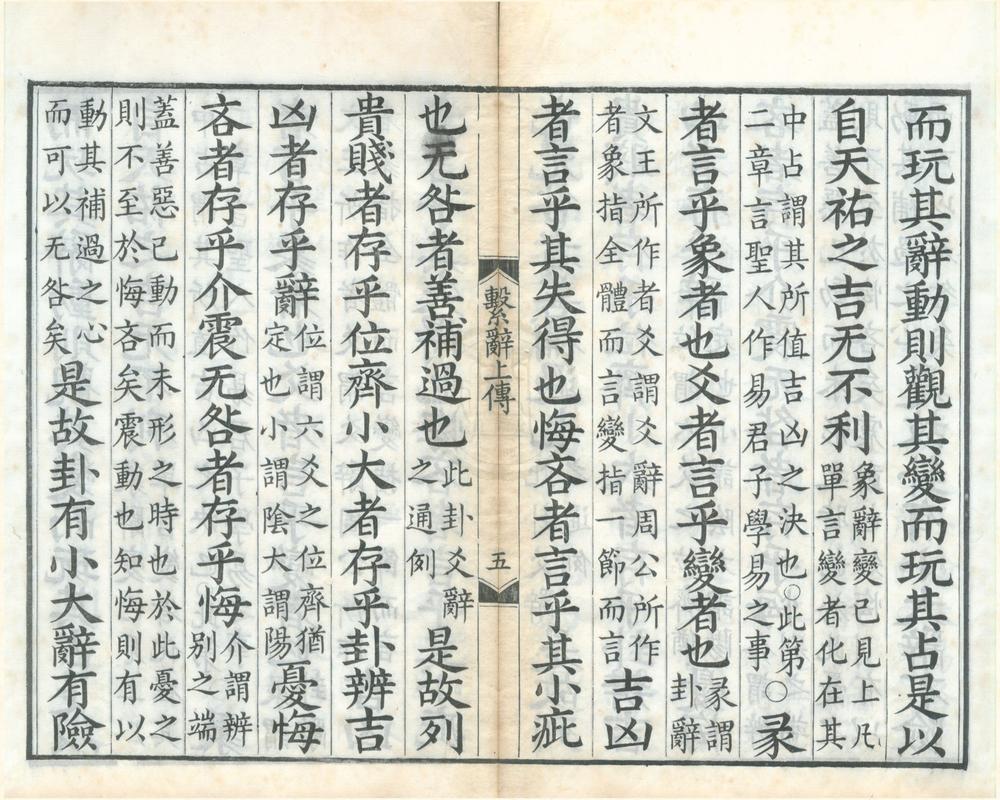 而玩其辭動則觀其變而玩其占是以
自天祐之吉无不利象辭變已見上凡單言變者化在其
中占謂其所值吉凶之決也○此第二章言聖人作易君子學易之事○彖
者言乎象者也爻者言乎變者也彖謂卦辭
文王所作者爻謂爻辭周公所作者象指全體而言變指一節而言吉凶
者言乎其失得也悔吝者言乎其小疵
繫辭上傳
五
也无咎者善補過也此卦爻辭之通例是故列
貴賤者存乎位齊小大者存乎卦辨吉
凶者存乎辭位謂六爻之位齊猶定也小謂陰大謂陽憂悔
吝者存乎介震无咎者存乎悔介謂辨别之端
蓋善惡已動而未形之時也於此憂之則不至於悔吝矣震動也知悔則有以
動其補過之心而可以无咎矣是故卦有小大辭有險